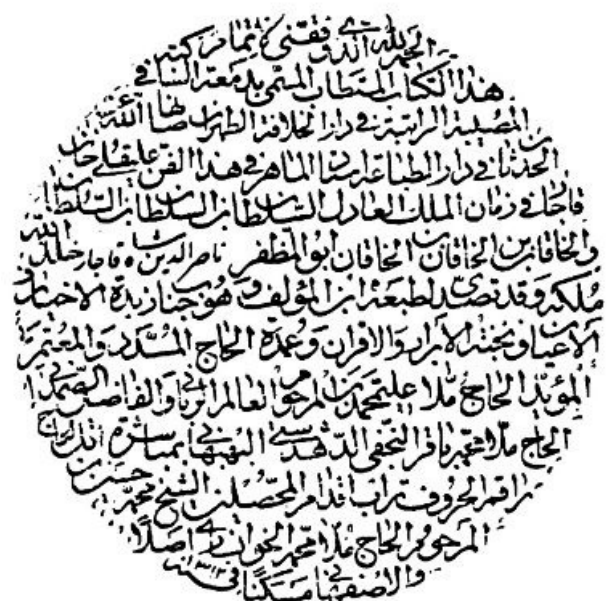 الحمد لله الذي وفقني لاتمام كتبة
هذا الكتاب المستطاب المسمى بدمعة الساكبة في
المصيبة الراتبة في دار الخلافة الطهران صانها الله عن
الحدثان في دار الطباعة استاد الماهر في هذا الفن عليقلي خان
قاجار في زمان الملك العادل السلطان بن السلطان بن السلطان
والخاقان بن الخاقان بن الخاقان ابو المظفر ناصر الدين شاه قاجار خلد الله
ملكه وقد تصدى لطبعه ابن المؤلف وهو جناب زبدة الاخيار و
الاعيان ونخبة الابرار والاقران وعمدة الحاج المسدد والمعتمر
المؤيد الحاج ملا عليمحمد بن المرحوم العالم الرباني والفاضل الصمداني
الحاج ملا محمد باقر النجفي الدهدشتي البهبهاني بمباشرة
راقم الحروف تراب اقدام المحصلين الشيخ محمد حسن بن
المرحوم الحاج ملا محمد الخوانساري اصلا
والاصفهاني مسكنا في سنة